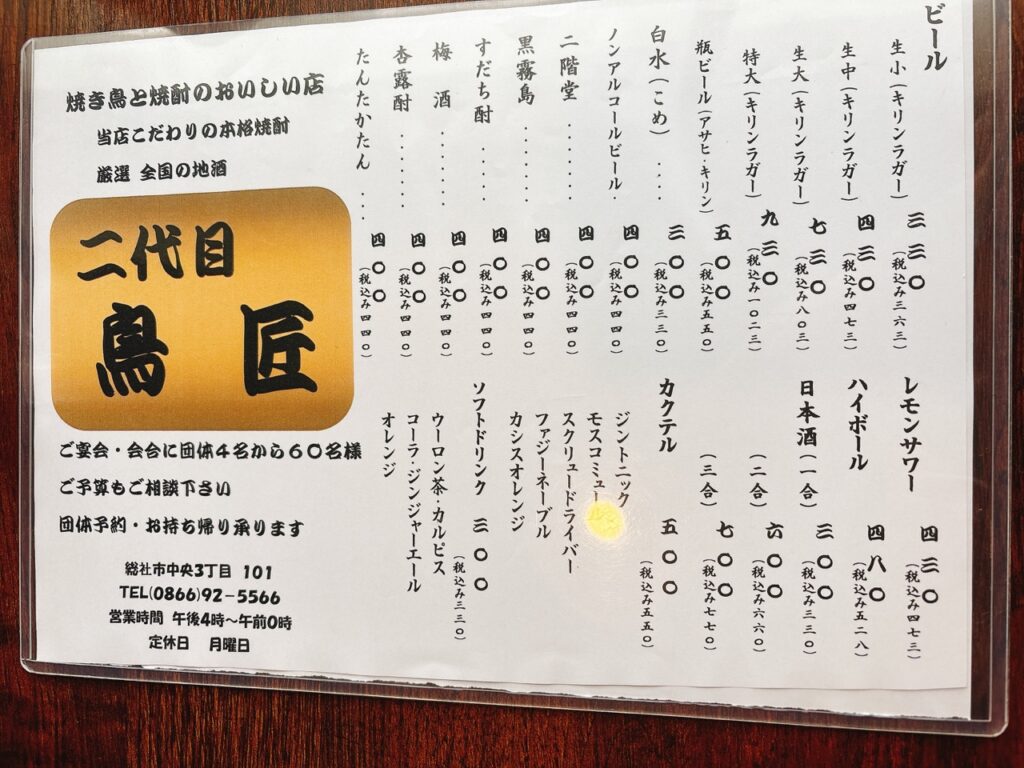 ビール
生小(キリンラガー) 三三〇
(税込み三六三)
生中(キリンラガー) 四三〇
(税込み四七三)
生大(キリンラガー) 七三〇
(税込み八〇三)
特大(キリンラガー) 九三〇
(税込み一〇二三)
瓶ビール(アサヒ・キリン) 五〇〇
(税込み五五〇)
白水(こめ)..... 三〇〇
(税込み三三〇)
ノンアルコールビール. 四〇〇
(税込み四四〇)
二階堂...... 四〇〇
(税込み四四〇)
黒霧島...... 四〇〇
(税込み四四〇)
すだち酎..... 四〇〇
(税込み四四〇)
梅 酒...... 四〇〇
(税込み四四〇)
杏露酎...... 四〇〇
(税込み四四〇)
たんたかたん... 四〇〇
(税込み四四〇)
レモンサワー 四三〇
(税込み四七三)
ハイボール 四八〇
(税込み五二八)
日本酒(一合) 三〇〇
(税込み三三〇)
(二合) 六〇〇
(税込み六六〇)
(三合) 七〇〇
(税込み七七〇)
カクテル 五〇〇
(税込み五五〇)
ジントニック
モスコミュール
スクリュードライバー
ファジーネーブル
カシスオレンジ
ソフトドリンク 三〇〇
(税込み三三〇)
ウーロン茶・カルピス
コーラ・ジンジャーエール
オレンジ
焼き鳥と焼酎のおいしい店
当店こだわりの本格焼酎
厳選 全国の地酒
二代目
鳥匠
ご宴会・会合に団体4名から60名様
ご予算もご相談下さい
団体予約・お持ち帰り承ります
総社市中央3丁目 101
TEL(0866)92-5566
営業時間 午後4時〜午前0時
定休日 月曜日